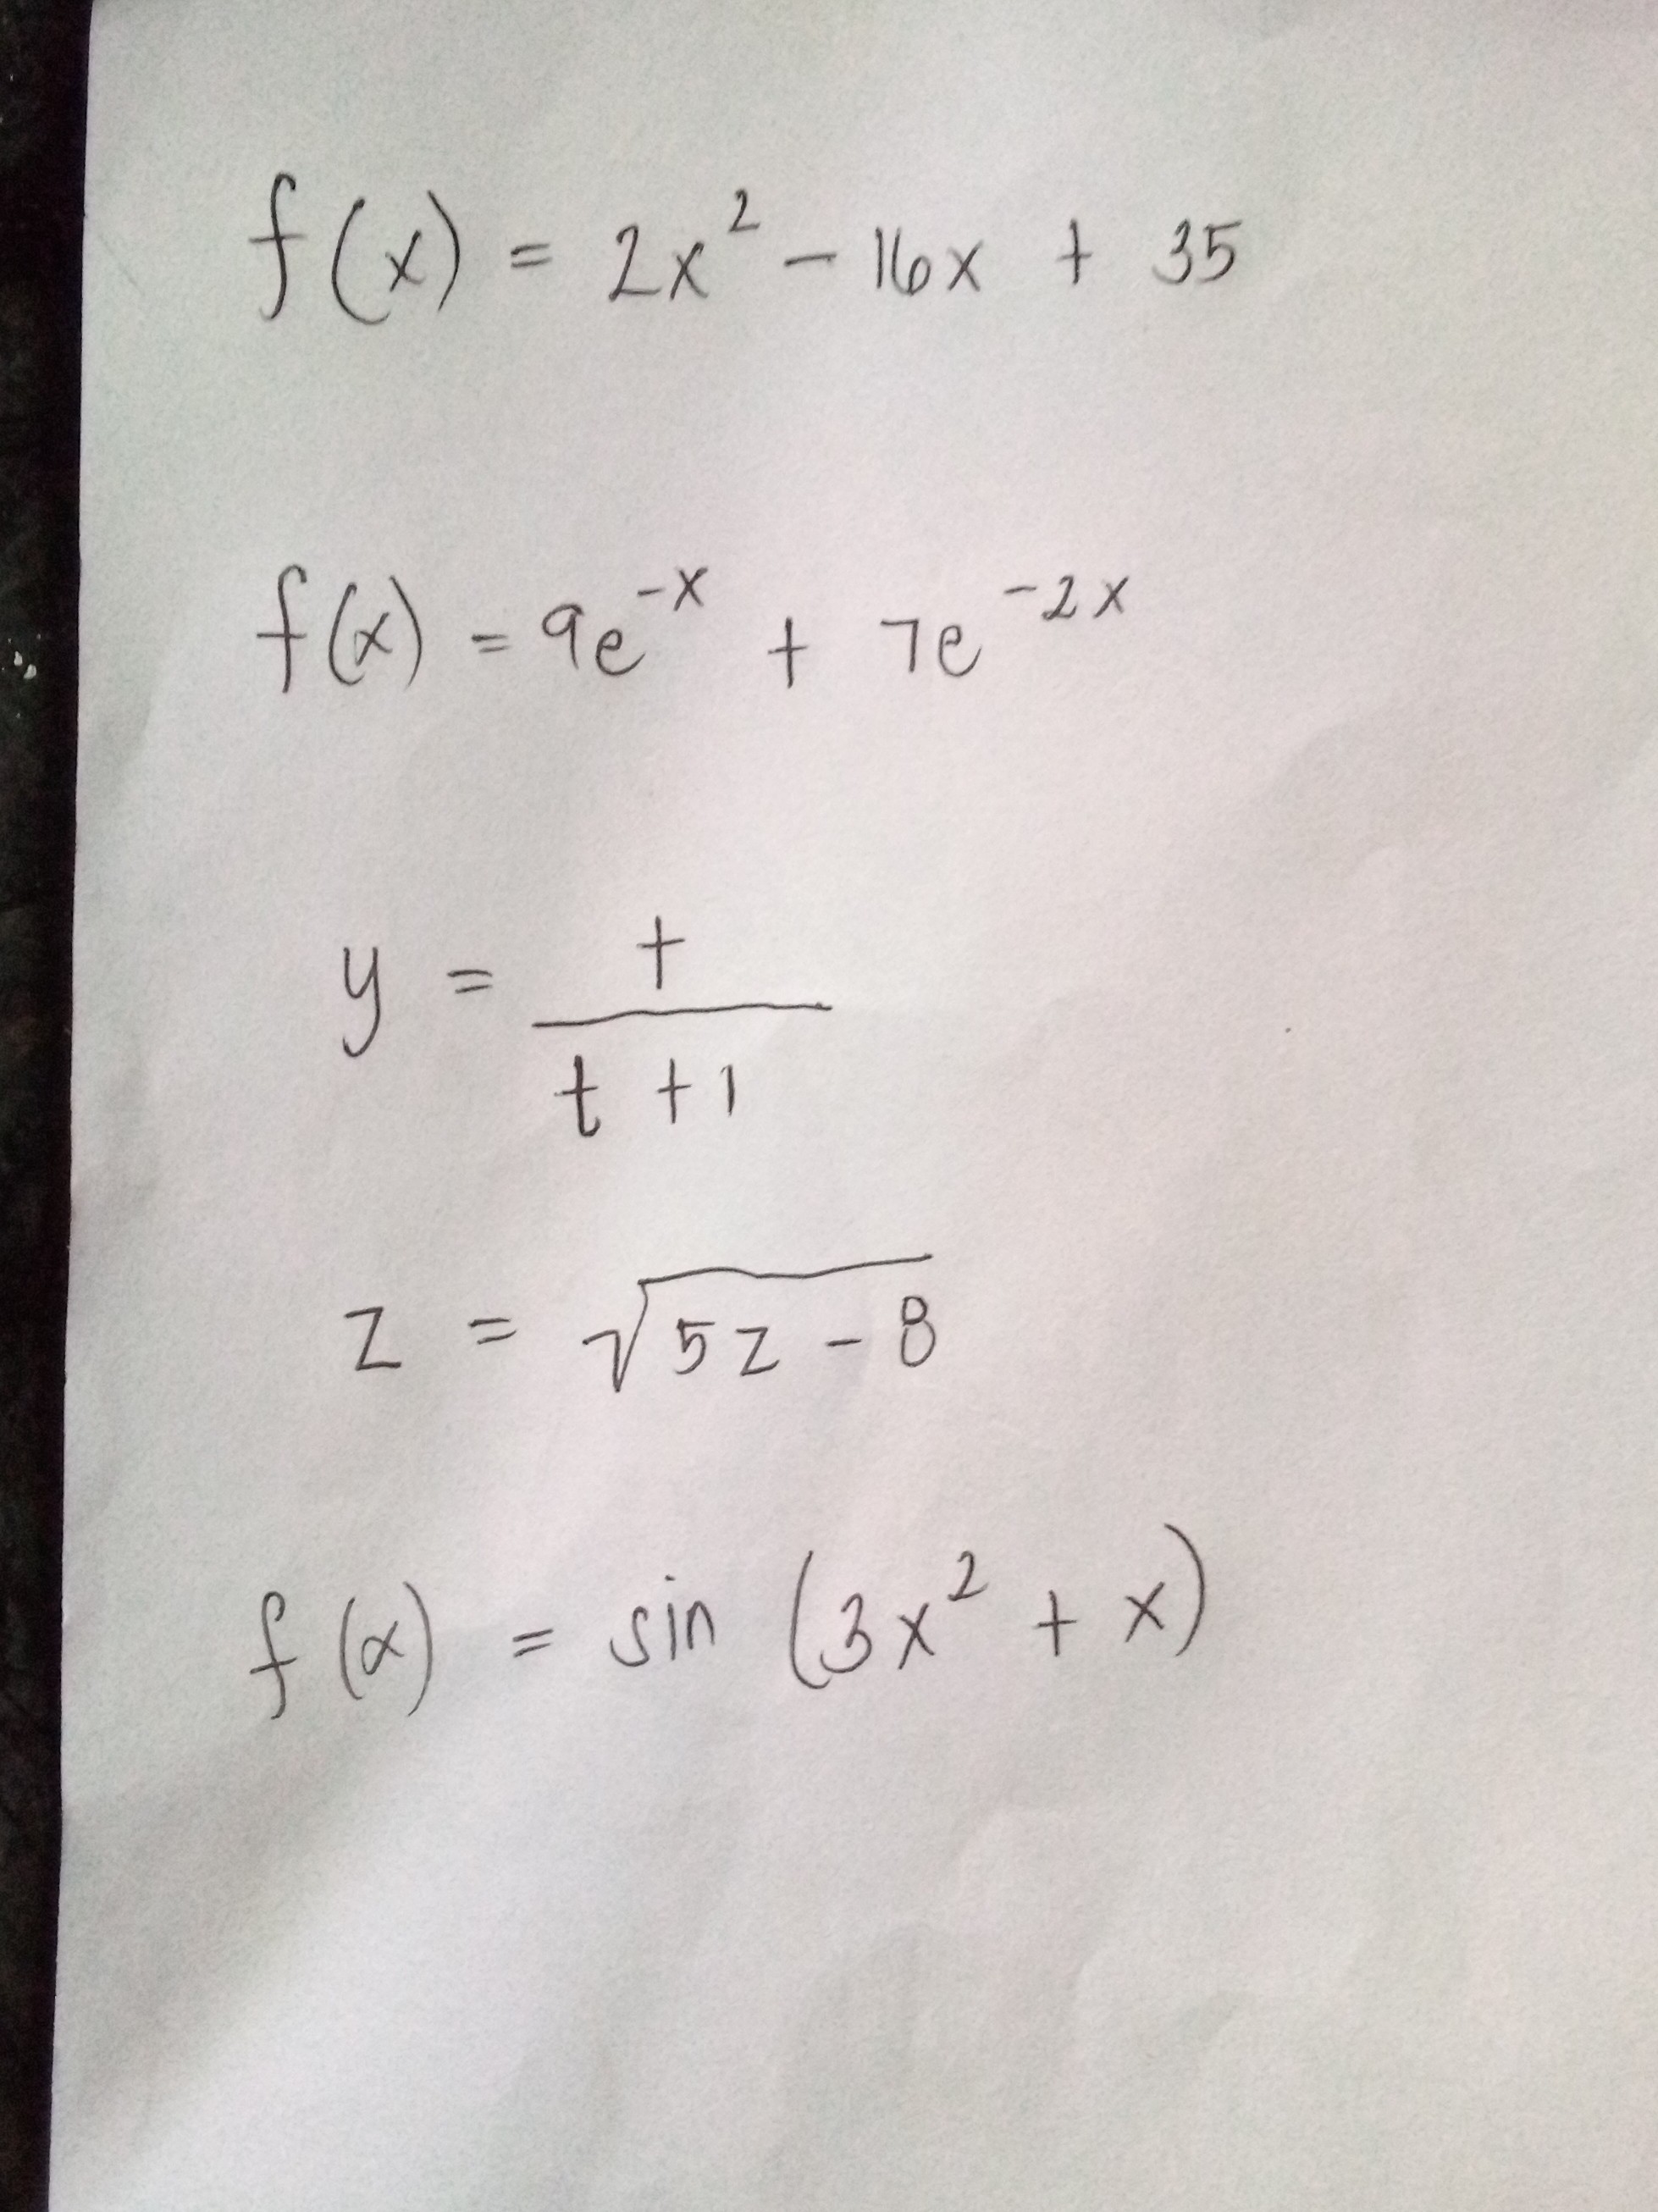 f(x) = 2x² - 16x + 35
f(x) = 9e^{-x} + 7e^{-2x}
y = \frac{t}{t+1}
z = \sqrt{5z-8}
f(x) = sin (3x² + x)